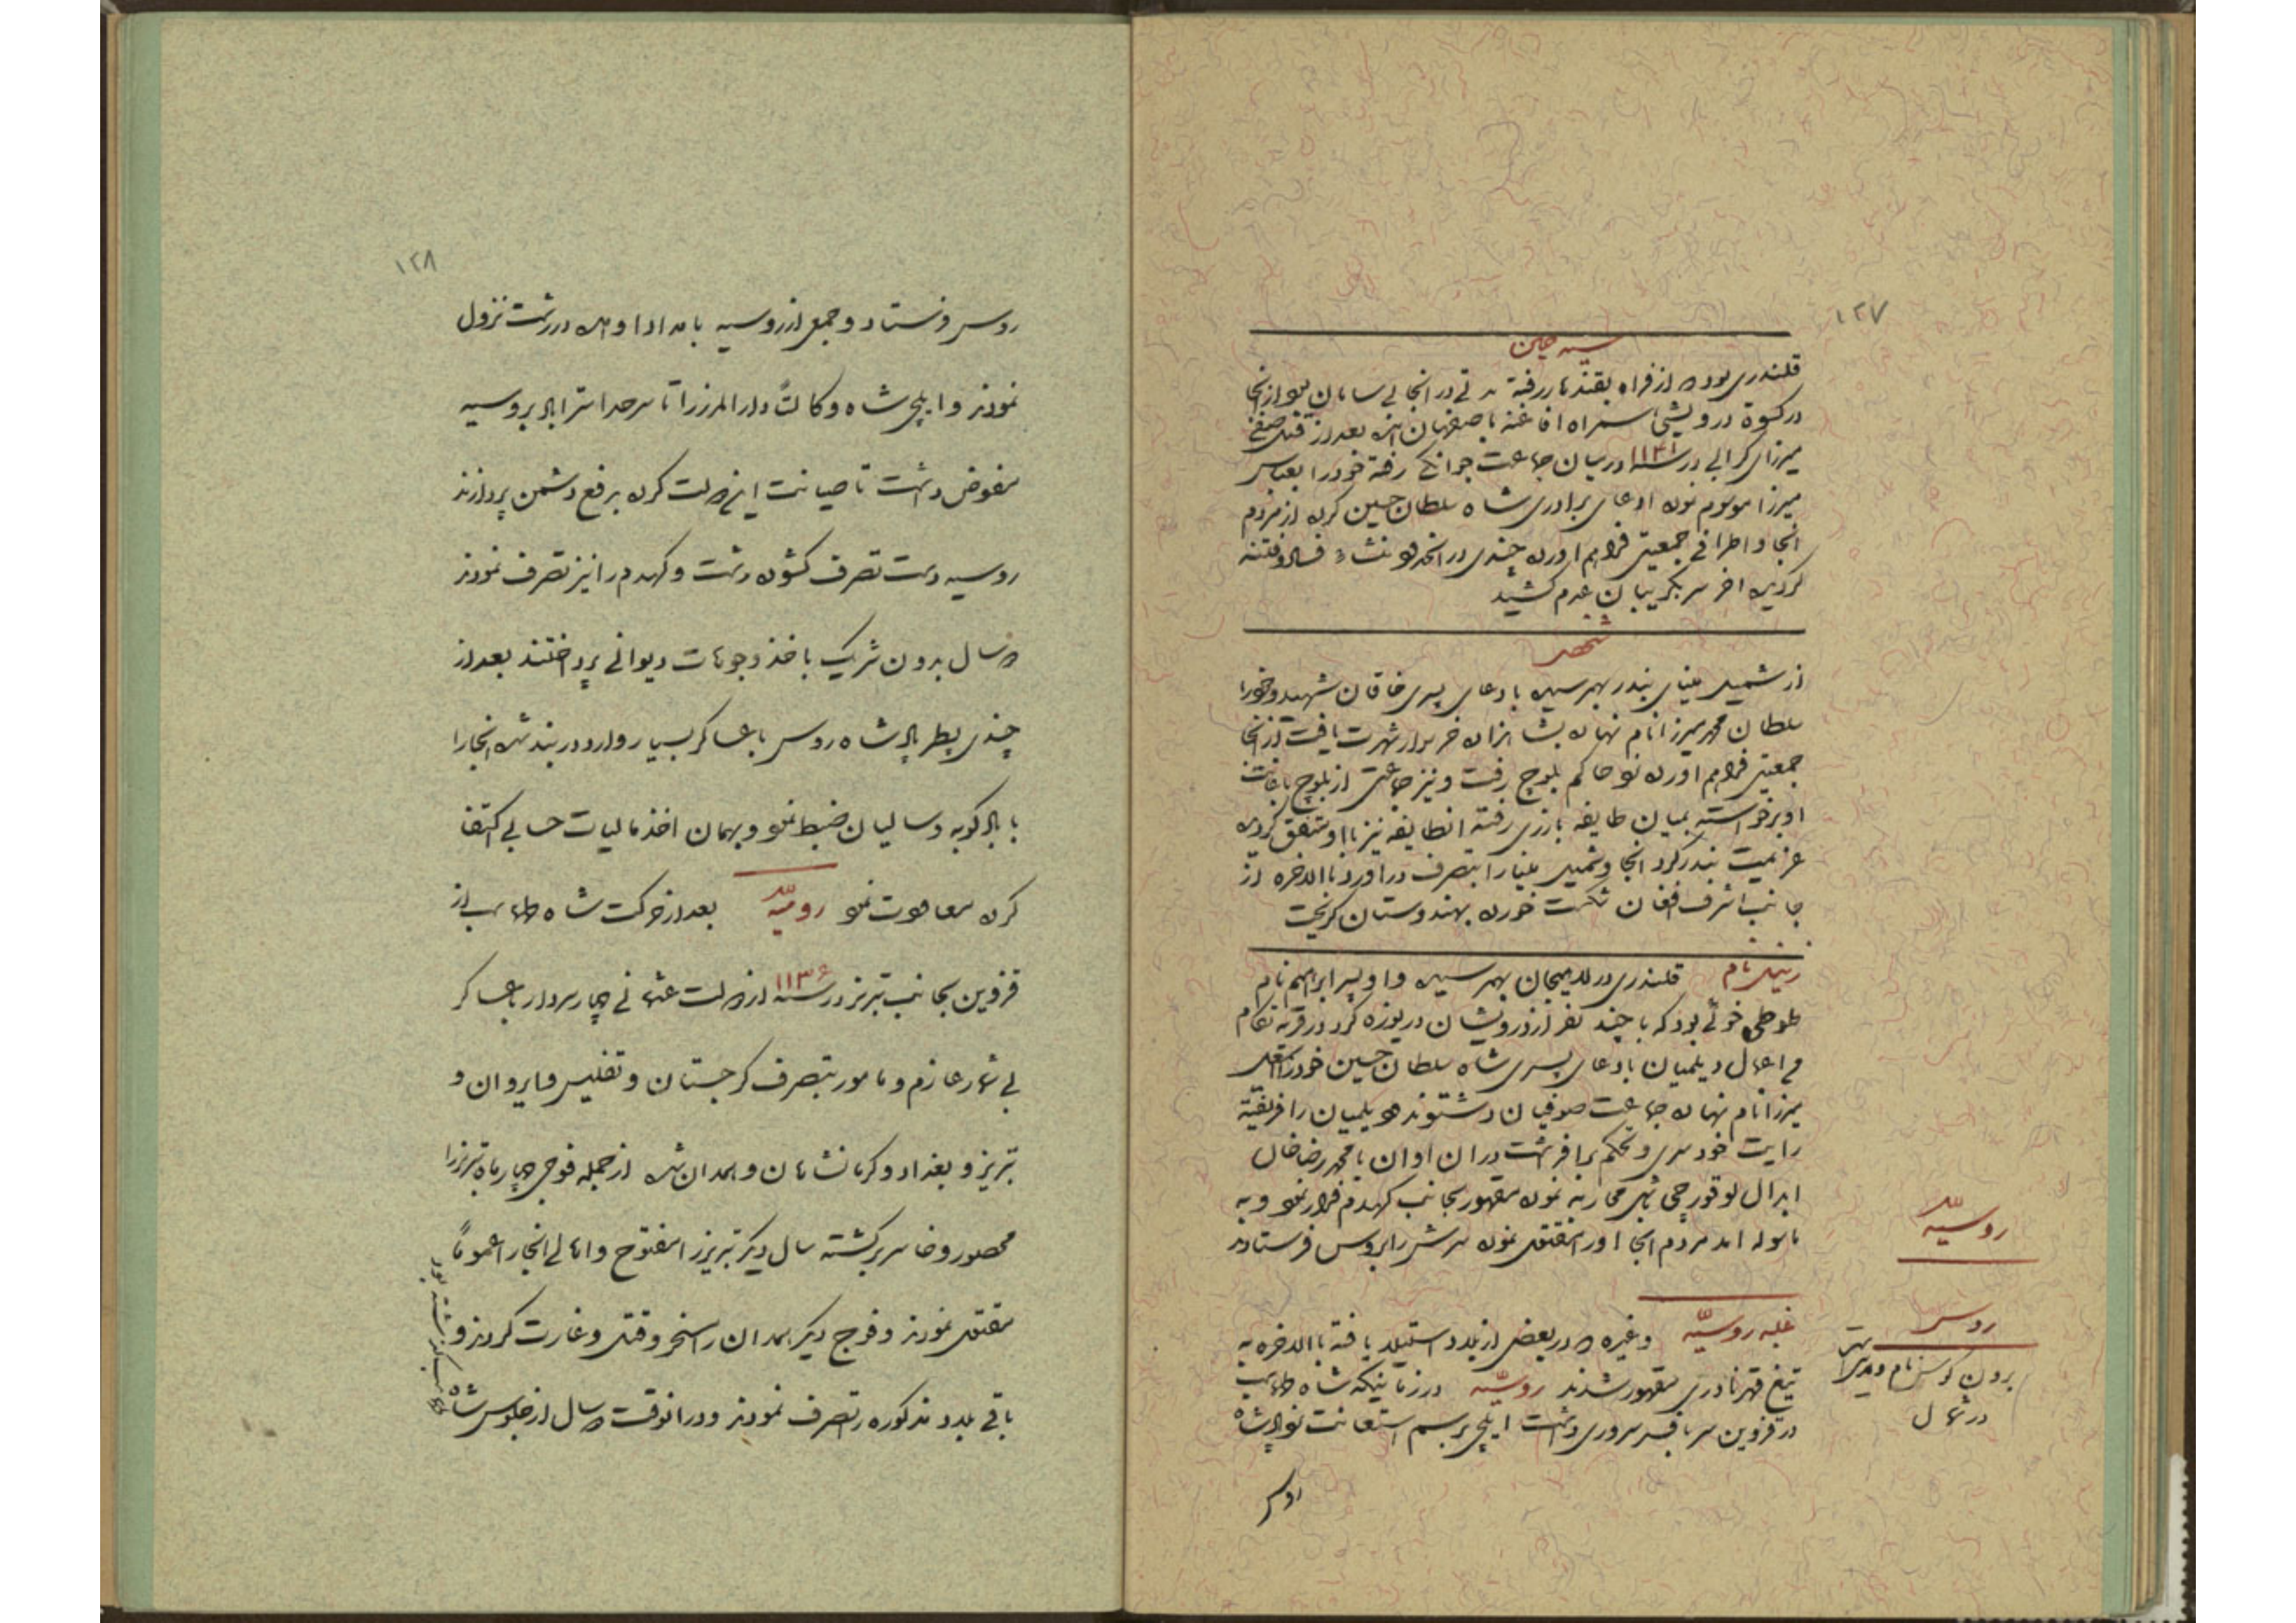 ۱۲۷
سید حسین
قلندری بوده از فراه بقندهار رفته مدتی در انجا بی سامان بود از انجا
در کسوة درویشی همراه افاغنه باصفهان امده بعد از قتل صفی
میرزای کرائی در سنه ۱۱۴۱ در میان جماعت جوانکی رفته خود را بعباس
میرزا موسوم نموده ادعای برادری شاه سلطان حسین کرده از مردم
انجا و اطراف جمعیتی فراهم اورده چندی در انحدود منشاء فساد و فتنه
کردیده اخر سر بکریبان عدم کشید
از شمیل مینای بندر بهمرسیده بادعای پسری خاقان شهید و خود را
سلطان محمد میرزا نام نهاده بشاهزاده خر سوار شهرت یافت از انجا
جمعیتی فراهم اورده نزد حاکم بلوچ رفت و نیز جماعتی از بلوچ باعانت
او برخواسته بمیان طایفه بارزی رفته انطایفه نیز با او متفق کردیده
عزیمت بندر کرد انجا و شمیل مینا را بتصرف در اورد بالاخره از
جانب اشرف افغان شکست خورده بهندوستان کریخت
زینل نام قلندری در لاهیجان بهمرسیده و او پسر ابراهیم نام
طوطی خوئی بود که با چند نفر از درویشان دریوزه کرد در قریه
من اعمال دیلمیان بادعای پسری شاه سلطان حسین خود را اسمعیل
میرزا نام نهاده جماعت صوفیان دشتوند و دیلمیان را فریفته
رایت خودسری و تحکم برافراشت در ان اوان با محمد رضا خان
ابدال لو قورچی باشی محاربه نموده مقهور بجانب کهدم فرار نمود و به
ماسوله امد مردم انجا او را مقتول نموده سرش را بروس فرستادند
روسیه
غلبه روسیه وغیره که در بعضی از بلاد استیلا یافته بالاخره به
تیغ قهر نادری مقهور شدند روسیه در زمانیکه شاه طهماسب
در قزوین سر بافسر سروری داشت ایلچی برسم استعانت نزد پادشاه
روس
در شمال
۱۲۸
روس فرستاد و جمعی از روسیه بامداد او امده در رشت نزول
نمودند و ایلچی شاه وکالتً دارالمرز را تا سرحد استراباد بروسیه
مفوض داشت تا صیانت این مملکت کرده برفع دشمن پردازند
روسیه دست تصرف کشوده رشت و کهدم را نیز تصرف نمودند
سال بدون شریک باخذ وجوهات دیوانی پرداختند بعد از
چندی پطر پادشاه روس با عساکر بسیار وارد دربند شده انجا را
با بادکوبه و سالیان ضبط نمود و بهمان اخذ مالیات حسابی اکتفا
کرده معاودت نمود رومیه بعد از حرکت شاه طهماسب از
قزوین بجانب تبریز در سنه ۱۱۳۶ از دولت عثمانی چهار سردار با عساکر
بی شمار عازم و مامور بتصرف کرجستان و تفلیس و ایروان و
تبریز و بغداد و کرمانشاهان و همدان شده از جمله فوجی چهار ماه تبریز را
محصور و خاسر برکشته سال دیکر تبریز را مفتوح و اهالی انجا را عموماً
مقتول نمودند و فوج دیکر همدان را مسخر و قتل و غارت کردند و
باقی بلاد مذکوره را تصرف نمودند و در انوقت سال از جلوس شاه
طهماسب گذشته بود